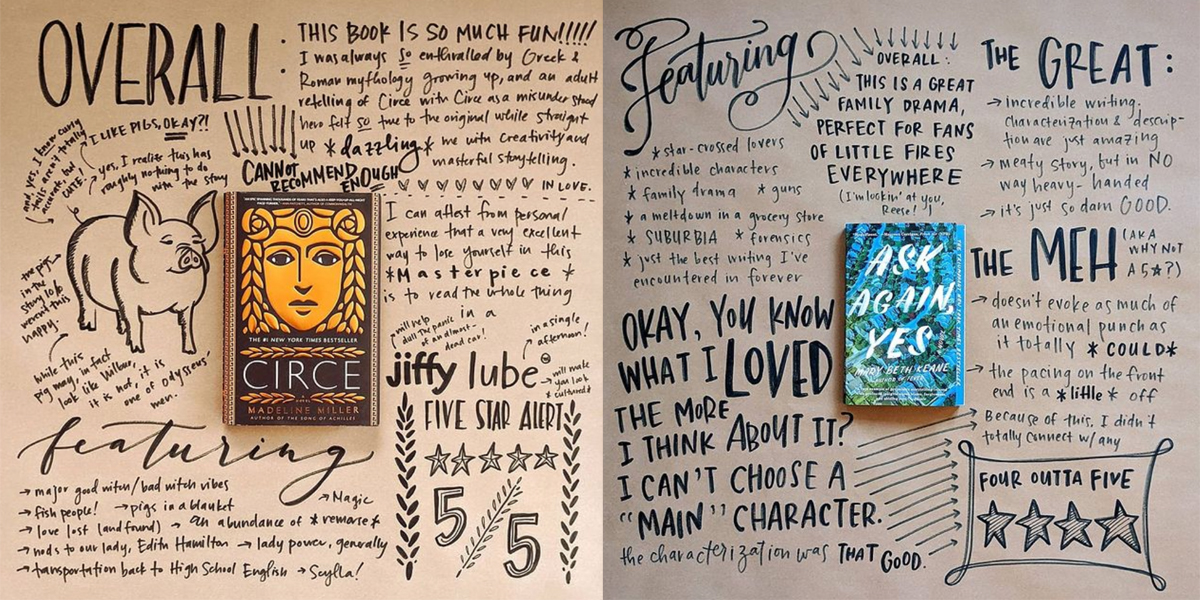 OVERALL:
THIS BOOK IS SO MUCH FUN!!!!!
I was always so enthralled by Greek &
Roman mythology growing up, and an adult
retelling of Circe with Circe as a misunderstood
hero felt so true to the original while straight
up *dazzling* me with creativity and
masterful storytelling.
I LIKE PIGS, OKAY?!
and yes, I know curly
tails aren't totally
accurate, but
CUTE!
→ yes, I realize this has
roughly nothing to do
with the story
CANNOT
RECOMMEND
ENOUGH
IN LOVE.
I can attest from personal
experience that a very excellent
way to lose yourself in this
*Masterpiece*
is to read the whole thing
in a
jiffy lube
will help
dull the panic
of an almost-
dead car!
in a single
afternoon!
→ will make
you look
*cultured*
FIVE STAR ALERT
5
5
the pigs
in the
story 10/10
weren't this
happy.
while this
pig may, in fact
look like Wilbur,
it is not, it is
one of Odysseus'
men.
THE #1 NEW YORK TIMES BESTSELLER
CIRCE
A NOVEL
MADELINE MILLER
AUTHOR OF THE SONG OF ACHILLES
featuring
→ major good witch/bad witch vibes
→ fish people! → pigs in a blanket
→ Magic
→ love lost (and found) → an abundance of *remorse*
→ nods to our lady, Edith Hamilton → lady power, generally
→ transportation back to High School English → Scylla!
Featuring
* star-crossed lovers
* incredible characters
* family drama * guns
* a meltdown in a grocery store
* SUBURBIA * forensics
* just the best writing I've
encountered in forever
OVERALL:
THIS IS A GREAT
FAMILY DRAMA,
PERFECT FOR FANS
OF LITTLE FIRES
EVERYWHERE
(I'm lookin' at you,
Reese!)
THE GREAT:
→ incredible writing.
characterization & descrip-
tion are just amazing
→ meaty story, but in NO
way heavy-handed
→ it's just so damn GOOD.
THE MEH
(AKA
WHY NOT
A 5★?)
→ doesn't evoke as much of
an emotional punch as
it totally *COULD*
→ the pacing on the front
end is a *little* off
→ Because of this, I didn't
totally connect w/ any
ASK
AGAIN,
YES
MARY BETH KEANE
OKAY, YOU KNOW
WHAT I LOVED
THE MORE
I THINK ABOUT IT?
I CAN'T CHOOSE A
"MAIN" CHARACTER.
the characterization was THAT GOOD.
FOUR OUTTA FIVE